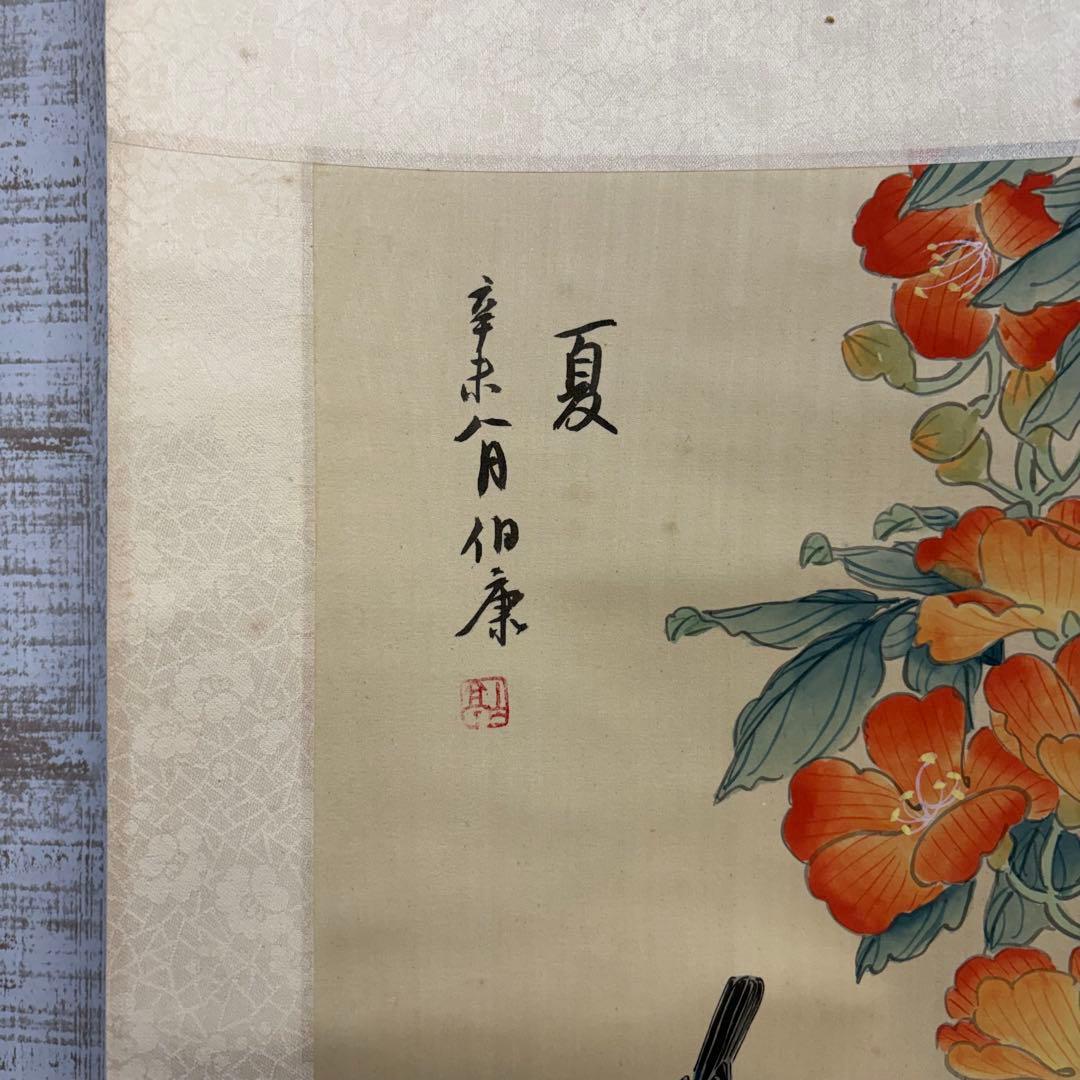 夏
辛未八月伯康